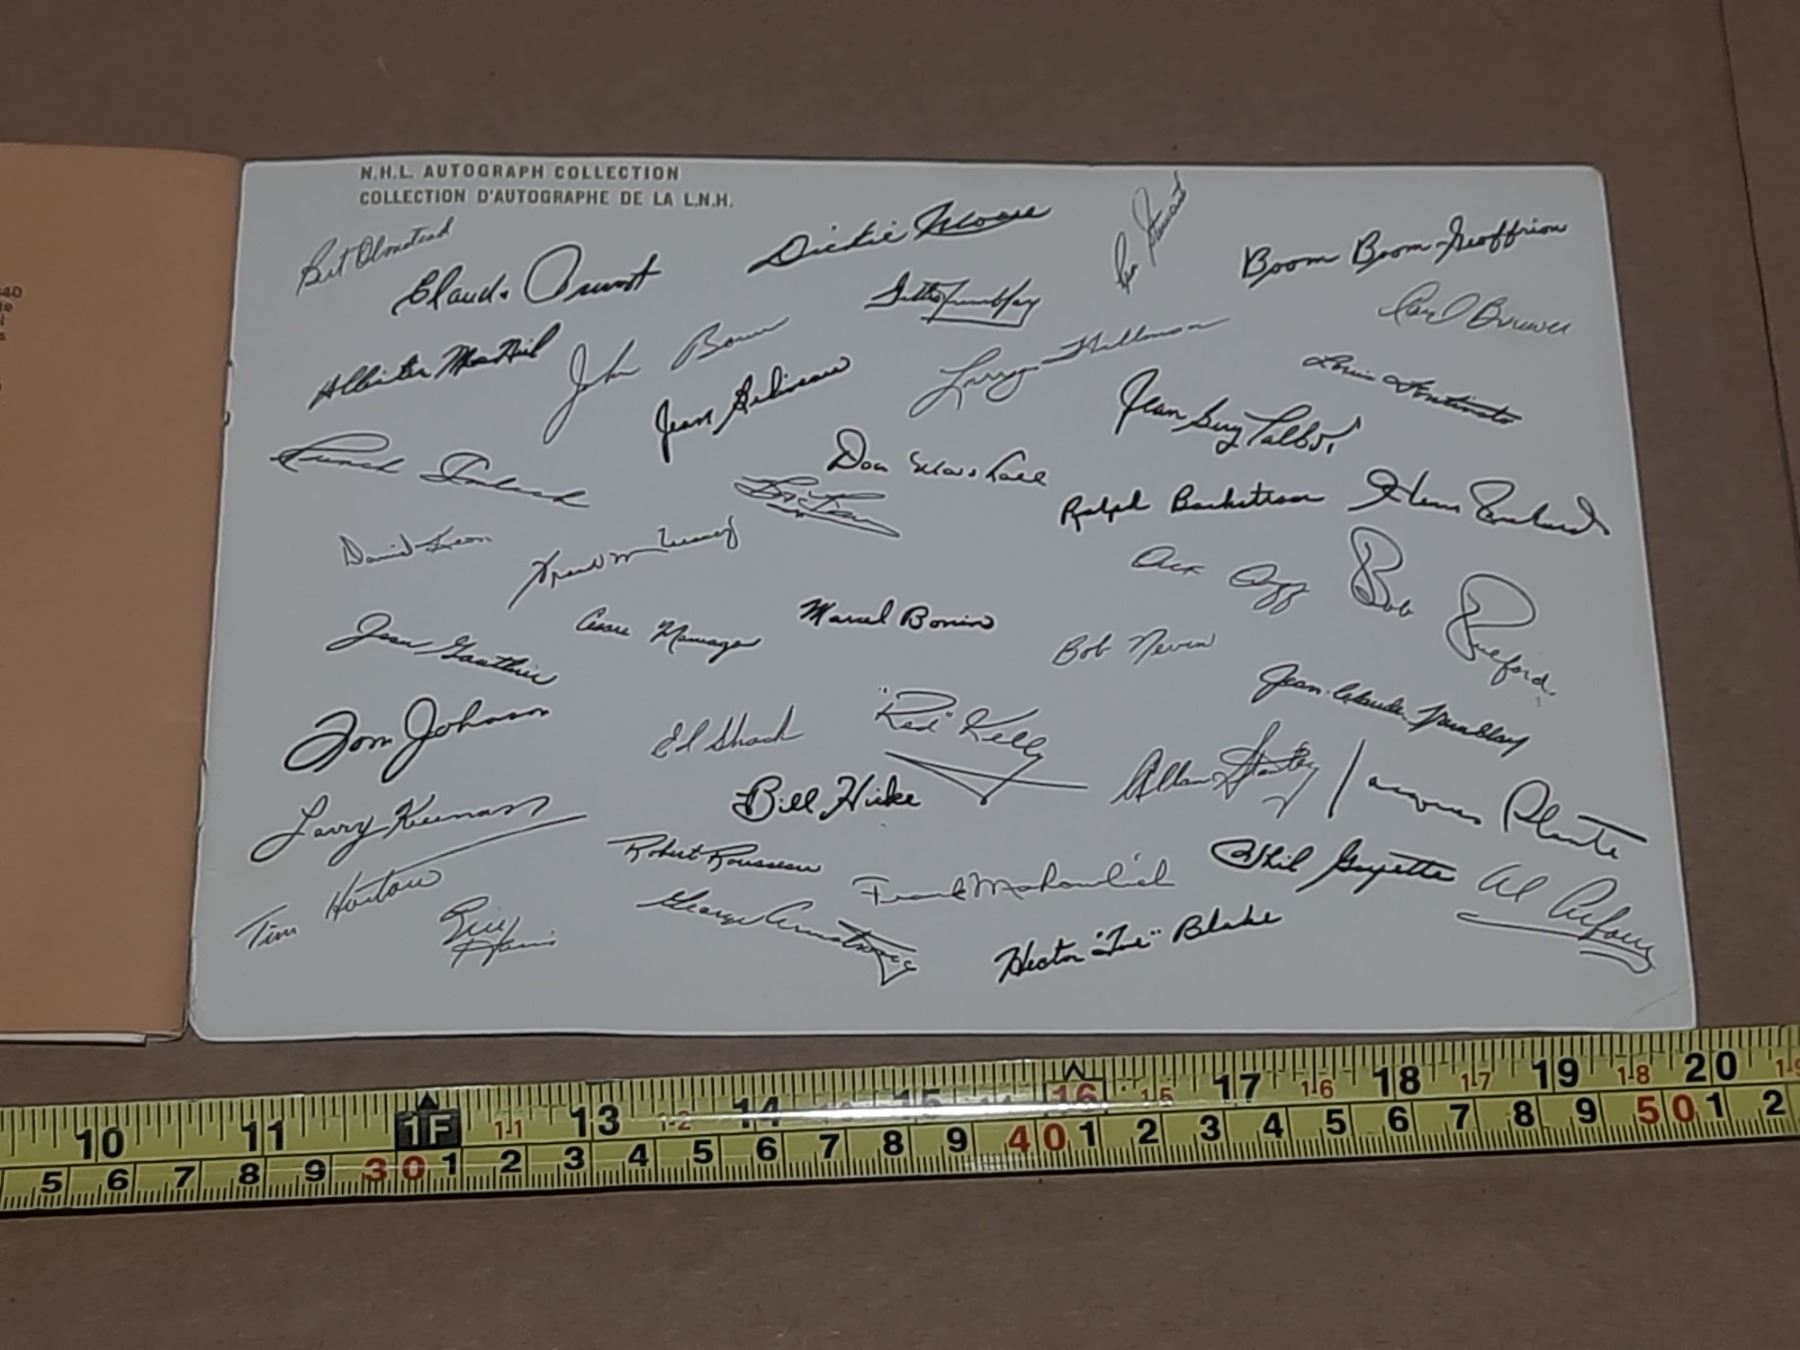 N.H.L. AUTOGRAPH COLLECTION
COLLECTION D'AUTOGRAPHE DE LA L.N.H.
Bert Olmstead
Claude Provost
Dickie Moore
Ron Stewart
Boom Boom Geoffrion
Gilles Tremblay
Carl Brewer
Allister MacNeil
John Bower
Jean Beliveau
Larry Hillman
Louis Fontinato
Jean Guy Talbot
Punch Imlach
Don Marshall
Ralph Backstrom
David Keon
Dick Duff
Bob Pulford
Jean Gauthier
Cesare Maniago
Marcel Bonin
Bob Nevin
Jean-Claude Tremblay
Tom Johnson
Ed Shack
"Red" Kelly
Allan Stanley
Jacques Plante
Larry Keenan
Bill Hicke
Robert Rousseau
Phil Goyette
Tim Horton
Bill Harris
George Armstrong
Frank Mahovlich
Al Arbour
Hector "Toe" Blake
10 11 1F 1-1 13 1-2 14 15 16 1-5 17 1-6 18 1-7 19 1-8 20 1-9
5 6 7 8 9 30 1 2 3 4 5 6 7 8 9 40 1 2 3 4 5 6 7 8 9 50 1 2